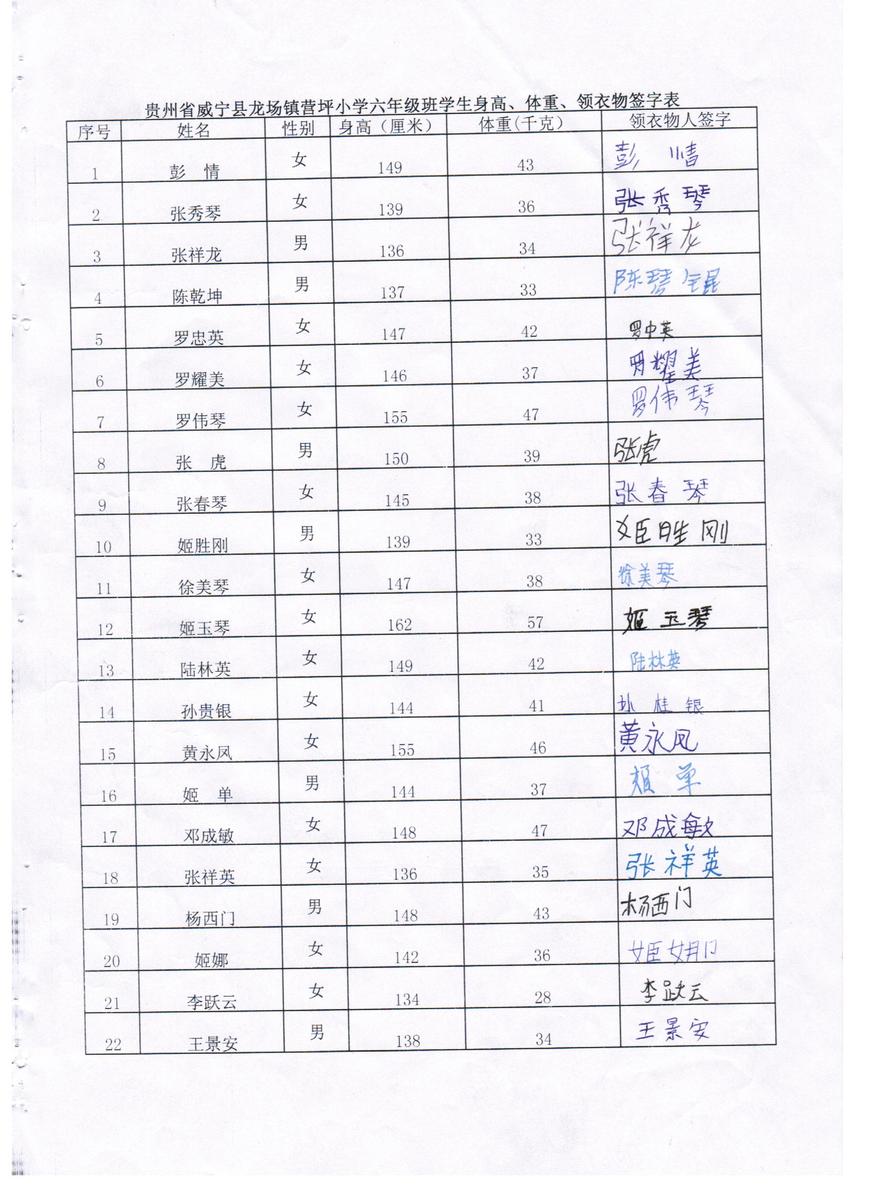 贵州省威宁县龙场镇营坪小学六年级班学生身高、体重、领衣物签字表
序号 姓名 性别 身高（厘米） 体重(千克) 领衣物人签字
1 彭 情 女 149 43 彭 情
2 张秀琴 女 139 36 张秀琴
3 张祥龙 男 136 34 张祥龙
4 陈乾坤 男 137 33 陈琴
5 罗忠英 女 147 42 罗中英
6 罗耀美 女 146 37 耀美
7 罗伟琴 女 155 47 罗伟琴
8 张 虎 男 150 39 张虎
9 张春琴 女 145 38 张春琴
10 姬胜刚 男 139 33 姬胜刚
11 徐美琴 女 147 38 徐美琴
12 姬玉琴 女 162 57 姬玉琴
13 陆林英 女 149 42 陆林英
14 孙贵银 女 144 41 孙桂银
15 黄永凤 女 155 46 黄永凤
16 姬 单 男 144 37 单
17 邓成敏 女 148 47 邓成敏
18 张祥英 女 136 35 张祥英
19 杨西门 男 148 43 杨西门
20 姬娜 女 142 36 姬娜
21 李跃云 女 134 28 李跃云
22 王景安 男 138 34 王景安